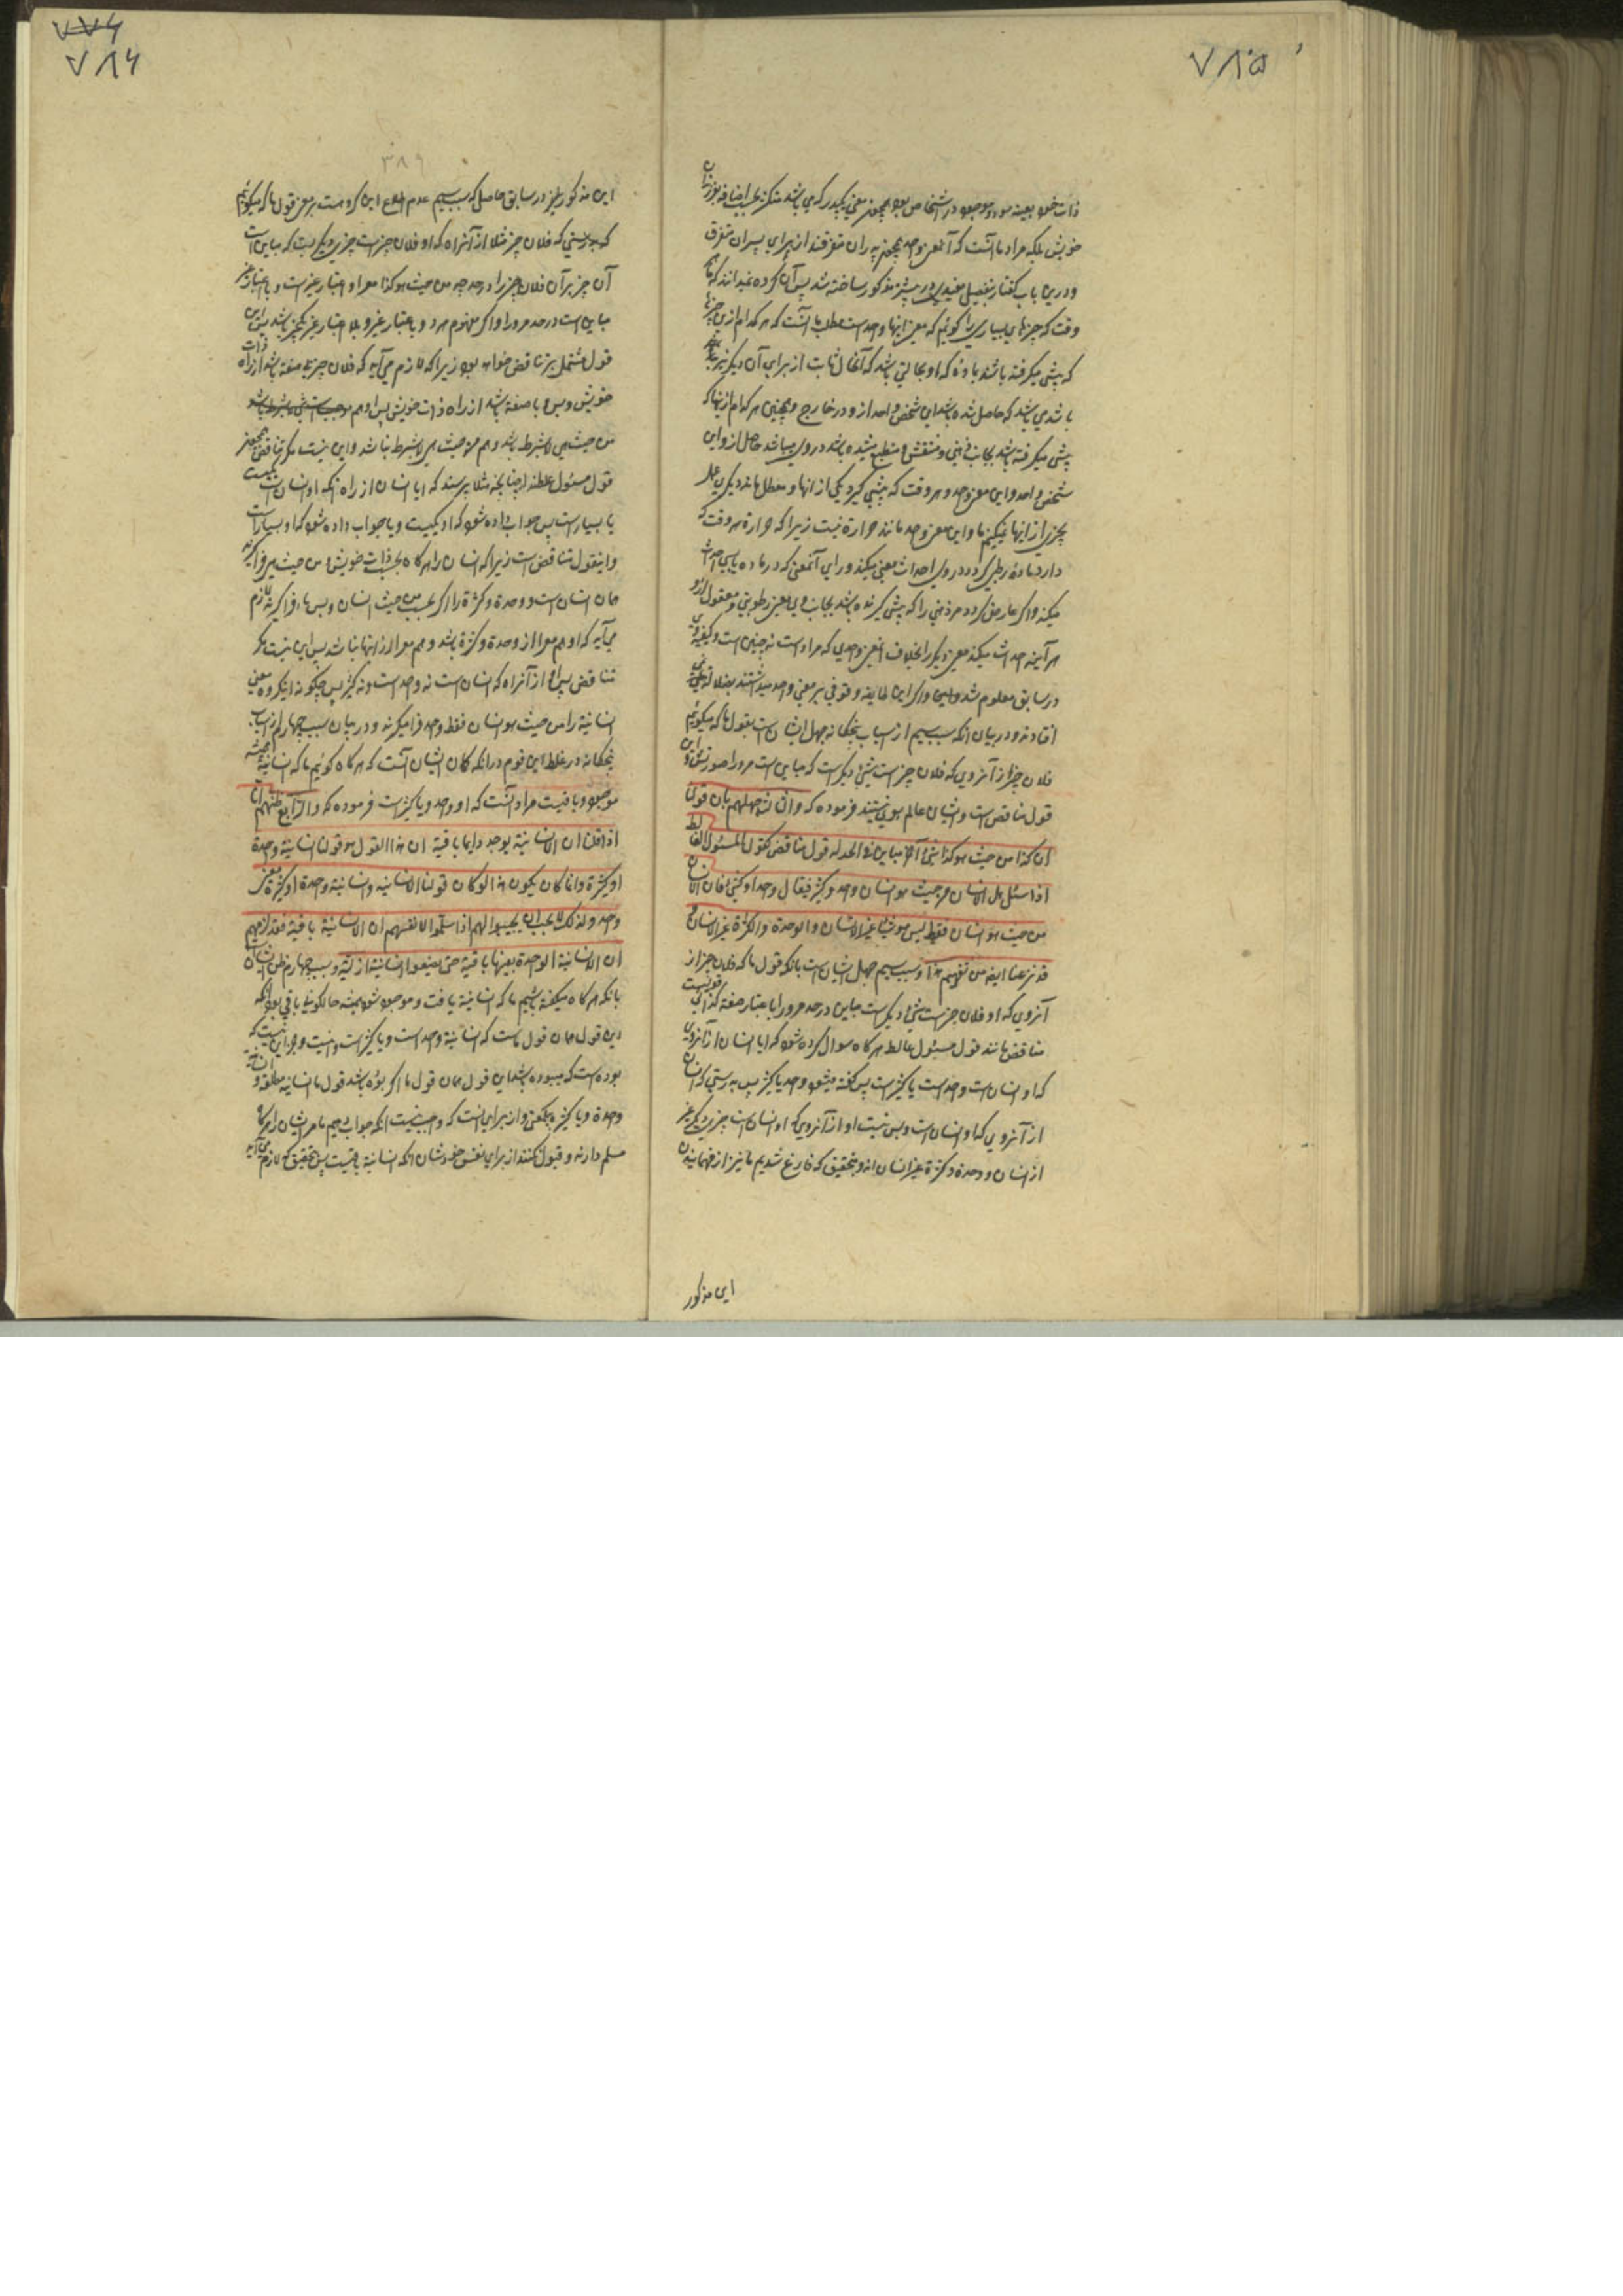 ۷۸۵
ذات خود بعینه بوده موجود در اشخاص بود همچون معنی یکپدر که می باشد متکثر بحسب اضافه بفرزندان
خویش بلکه مراد ما آنست که آنمعنی واحد همچون پدران متفرقند از برای پسران متفرق
ودرین باب گفتار بتفصیل مفیدی در پیشتر مذکور ساخته شد پس آن گروه نمیدانند که ما هر
وقت که چیزهای بسیاری را گوئیم که معنی اینها واحد است مطلب ما آنست که هر کدام ازین چیزها
که پیشی میگرفته باشند بماده که او بحالتی باشد که آنحال ثابت از برای آن دیگر نیز بوده
باشد می باشد که حاصل شده باشد این شخص واحد ازو در خارج و همچنین هر کدام ازینها که
پیشی میگرفته باشد بجانب ذهنی و منتقش و منطبع میشده باشد در وی میباشد حاصل ازو این
شخص واحد و این معنی واحد و هر وقت که پیشی گیرد یکی از انها و معطل ماند دیگری عمل
بچیزی از اینها نمیکنیم ما و این معنی واحد مانند حرارة نیست زیرا که حرارة هر وقت که
دارد مادۀ رطبی گردد در وی احداث معنی میکند ورای آنمعنی که در ماده یابس احداث
میکند واگر عارض گردد مر ذهنی را که پیشی گیرنده باشد بجانب وی معنی رطوبتی و معقول او
هر آینه احداث میکند معنی دیگر را بخلاف آنمعنی واحدی که مراد است نه چنین است و کیفیة وی
در سابق معلوم شد واگر این طایفه وقوفی بر معنی واحد میداشتند بضلالت نمی
افتادند و در بیان انکه سبب سیم از اسباب پنجگانه جهل ایشان است بقول ما که میگوئیم
فلان چیز از آنروی که فلان چیز است شیئی دیگر است که مباین است مر ورا در صورتش و این
قول مناقض است و ایشان عالم بوی نیستند فرموده که والثالث جهلهم بان قولنا
ان کذا من حیث هو کذا شئ آخر مباین فی الحد له قول مناقض کقول المسئول الغالط
اذا سئل هل الانسان من حیث هو انسان واحد او کثیر فیقال واحد او کثیر فان الانسان
من حیث هو انسان فقط لیس هو شیئا غیر الانسان والوحدة والکثرة غیر الانسان و
قد فرغنا ایضا من تفهیم هذا وسبب سیم جهل ایشان است بانکه قول ما که فلان چیز از
آنروی که او فلان چیز است شئ دیگر است مباین در حد مر ورا باعتبار صفة کذائی قولیست
مناقض مانند قول مسئول غالط هر گاه سوال کرده شود که ایا انسان از آنروی
که او انسان است واحد است یا کثیر است پس گفته میشود واحد یا کثیر پس بدرستی که انسان
از آنروی که او انسان است و بس نیست او از آنروی که او انسان است چیزی دیگر غیر
از انسان و وحدة و کثرة غیر انسان اند و بتحقیق که فارغ شدیم ما نیز از فهمانیدن
این مذکور
۷۷۶
۷۸۶
۳۸۹
این مذکور نیز در سابق حاصل که سبب سیم عدم اطلاع این گروهست بر معنی قول ما که میگوئیم
که بدرستی که فلان چیز مثلا از آنراه که او فلان چیز است چیزی دیگر است که مباین است
آن چیز بر آن فلان چیز را در حد چه من حیث هو کذا معرا و اعتبار غیر است و با اعتبار غیر
مباین است در حد مر ورا و اگر مفهوم هر دو باعتبار غیر و بلا اعتبار غیر یکچیز باشد پس این
قول مشتمل بر تناقض خواهد بود زیرا که لازم می آید که فلان چیز بلا صفة باشد از راه ذات
خویش و بس و با صفة باشد از راه ذات خویش پس او هم
من حیث هی لا بشرط باشد و هم من حیث هی لا بشرط نباشد و این نیست مگر تناقض همچون
قول مسئول غلط انداز چنانچه مثلا پرسند که ایا انسان از راه انکه او انسان است یکیست
یا بسیار است پس جواب داده شود که او یکیست و یا جواب داده شود که او بسیار است
و اینقول متناقض است زیرا که انسان را هر گاه بحسب ذات خویش و من حیث هی فرا گیرند
همان انسان است و وحدة و کثرة را اگر بحسب من حیث انسان و بس ها فرا گیرند لازم
می آید که او هم معرا از وحدة و کثرة باشد و هم معرا از انها نباشد پس این نیست مگر
تناقض پس او از آنراه که انسان است نه واحد است و نه کثیر پس چگونه اینگروه معنی
انسانیة را من حیث هو انسان فقط واحد فرا میگیرند و در بیان سبب چهارم از اسباب
پنجگانه در غلط این قوم در انکه گمان ایشان آنست که هر گاه گوئیم ما که انسانیة همیشه
موجود و باقیست مراد آنست که او واحد و یا کثیر است فرموده که والرابع ظنهم انا
اذا قلنا ان الانسانیة یوجد دایما باقیة ان هذا القول هو قولنا انسانیة واحدة
او کثیرة وانما کان یکون هذا لو کان قولنا الانسانیة وانسانیة واحدة او کثیرة معنی
واحد ولذلک لا یجب ان یجیبوا لهم اذا سلموا لانفسهم ان الانسانیة باقیة فقد لزمهم
ان الانسانیة الواحدة بعینها باقیة حتی یضعوا انسانیة ازلیة وسبب چهارم ظن ایشان
بانکه هر گاه میگفته باشیم ما که انسانیة یافت و موجود شود همیشه حالکونی باقی بود انکه
این قول همان قول ماست که انسانیة واحد است و یا کثیر است و نیست و جز این نیست که
بوده است که میبوده باشد این قول همان قول ما اگر بوده باشد قول ما انسانیه مطلقه و انسانیة
واحدة و یا کثیره بیکمعنی و از برای اینست که واجب نیست انکه جواب دهیم ما مر ایشان را هر گاه
مسلم دارند و قبول کنند از برای نفس خودشان انکه انسانیة باقیست پس بتحقیق که لازم می آید